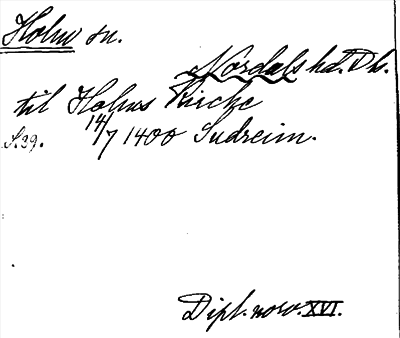 Holm sn.
Nordals hd. Ds.
til Holms Kirche
S.99. 14/7 1400 Sudreim.
Dipl. norv. XVI.